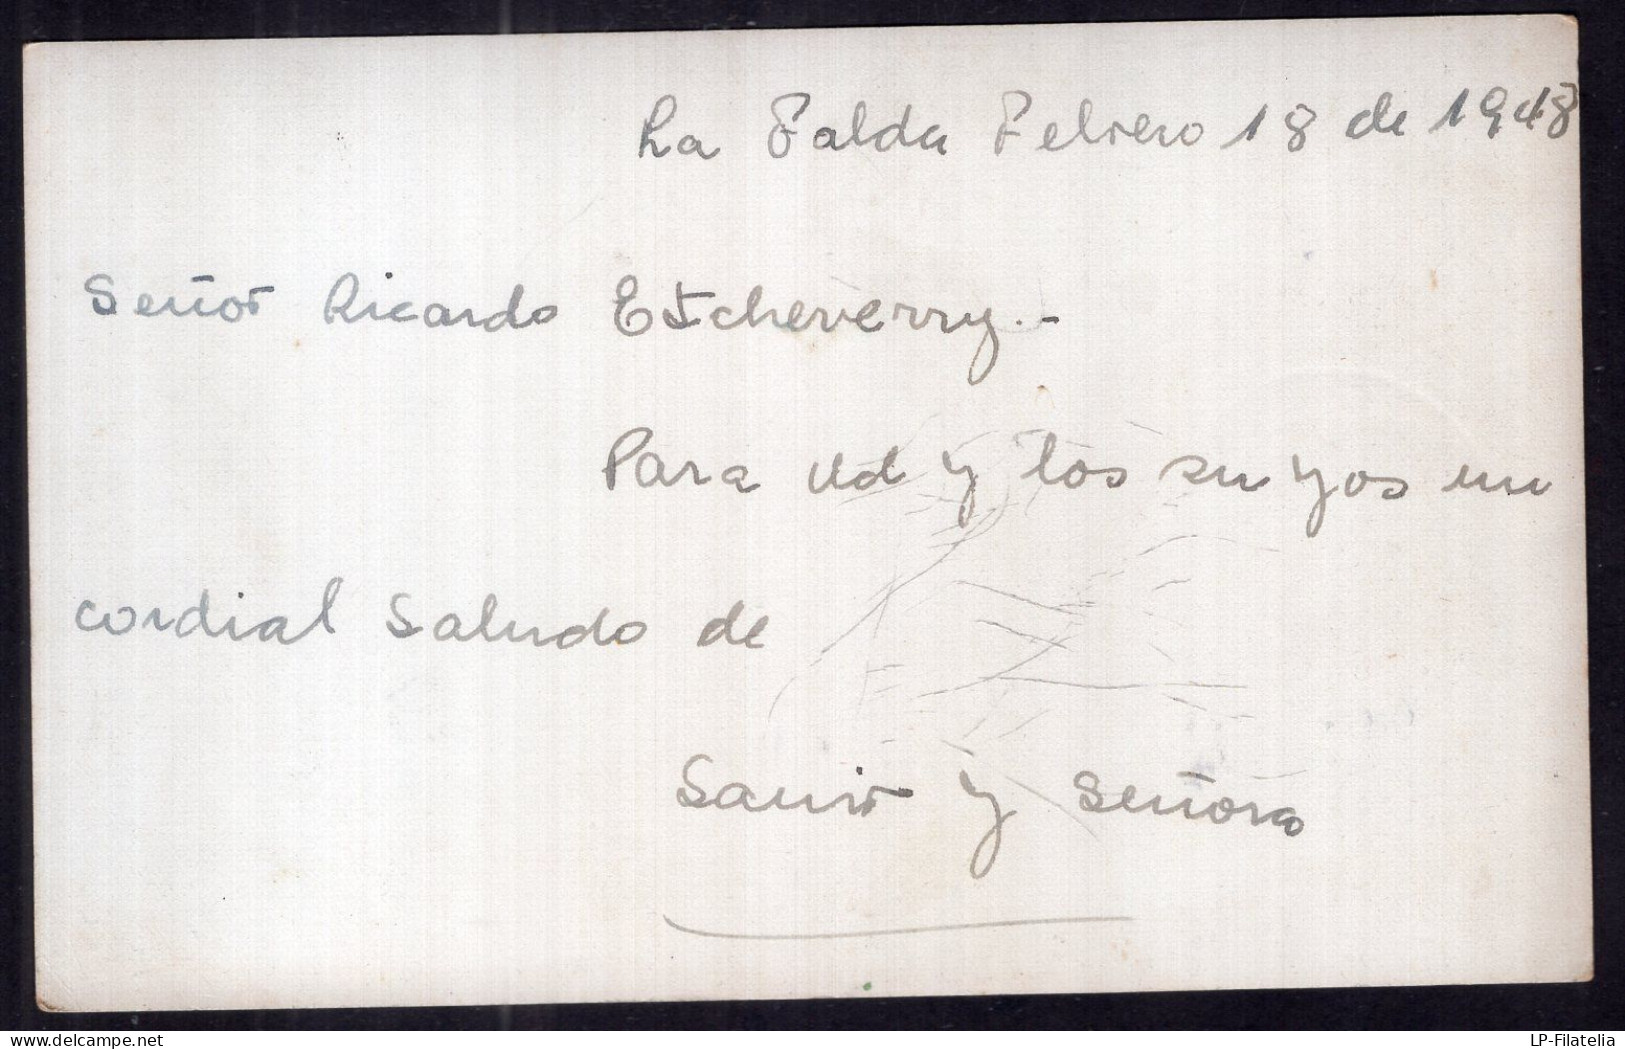 La Falda Febrero 18 de 1948
Señor Ricardo Etcheverry.-
Para Ud y los suyos un
cordial Saludo de
y Señora
delcampe.net
LP-Filatelia